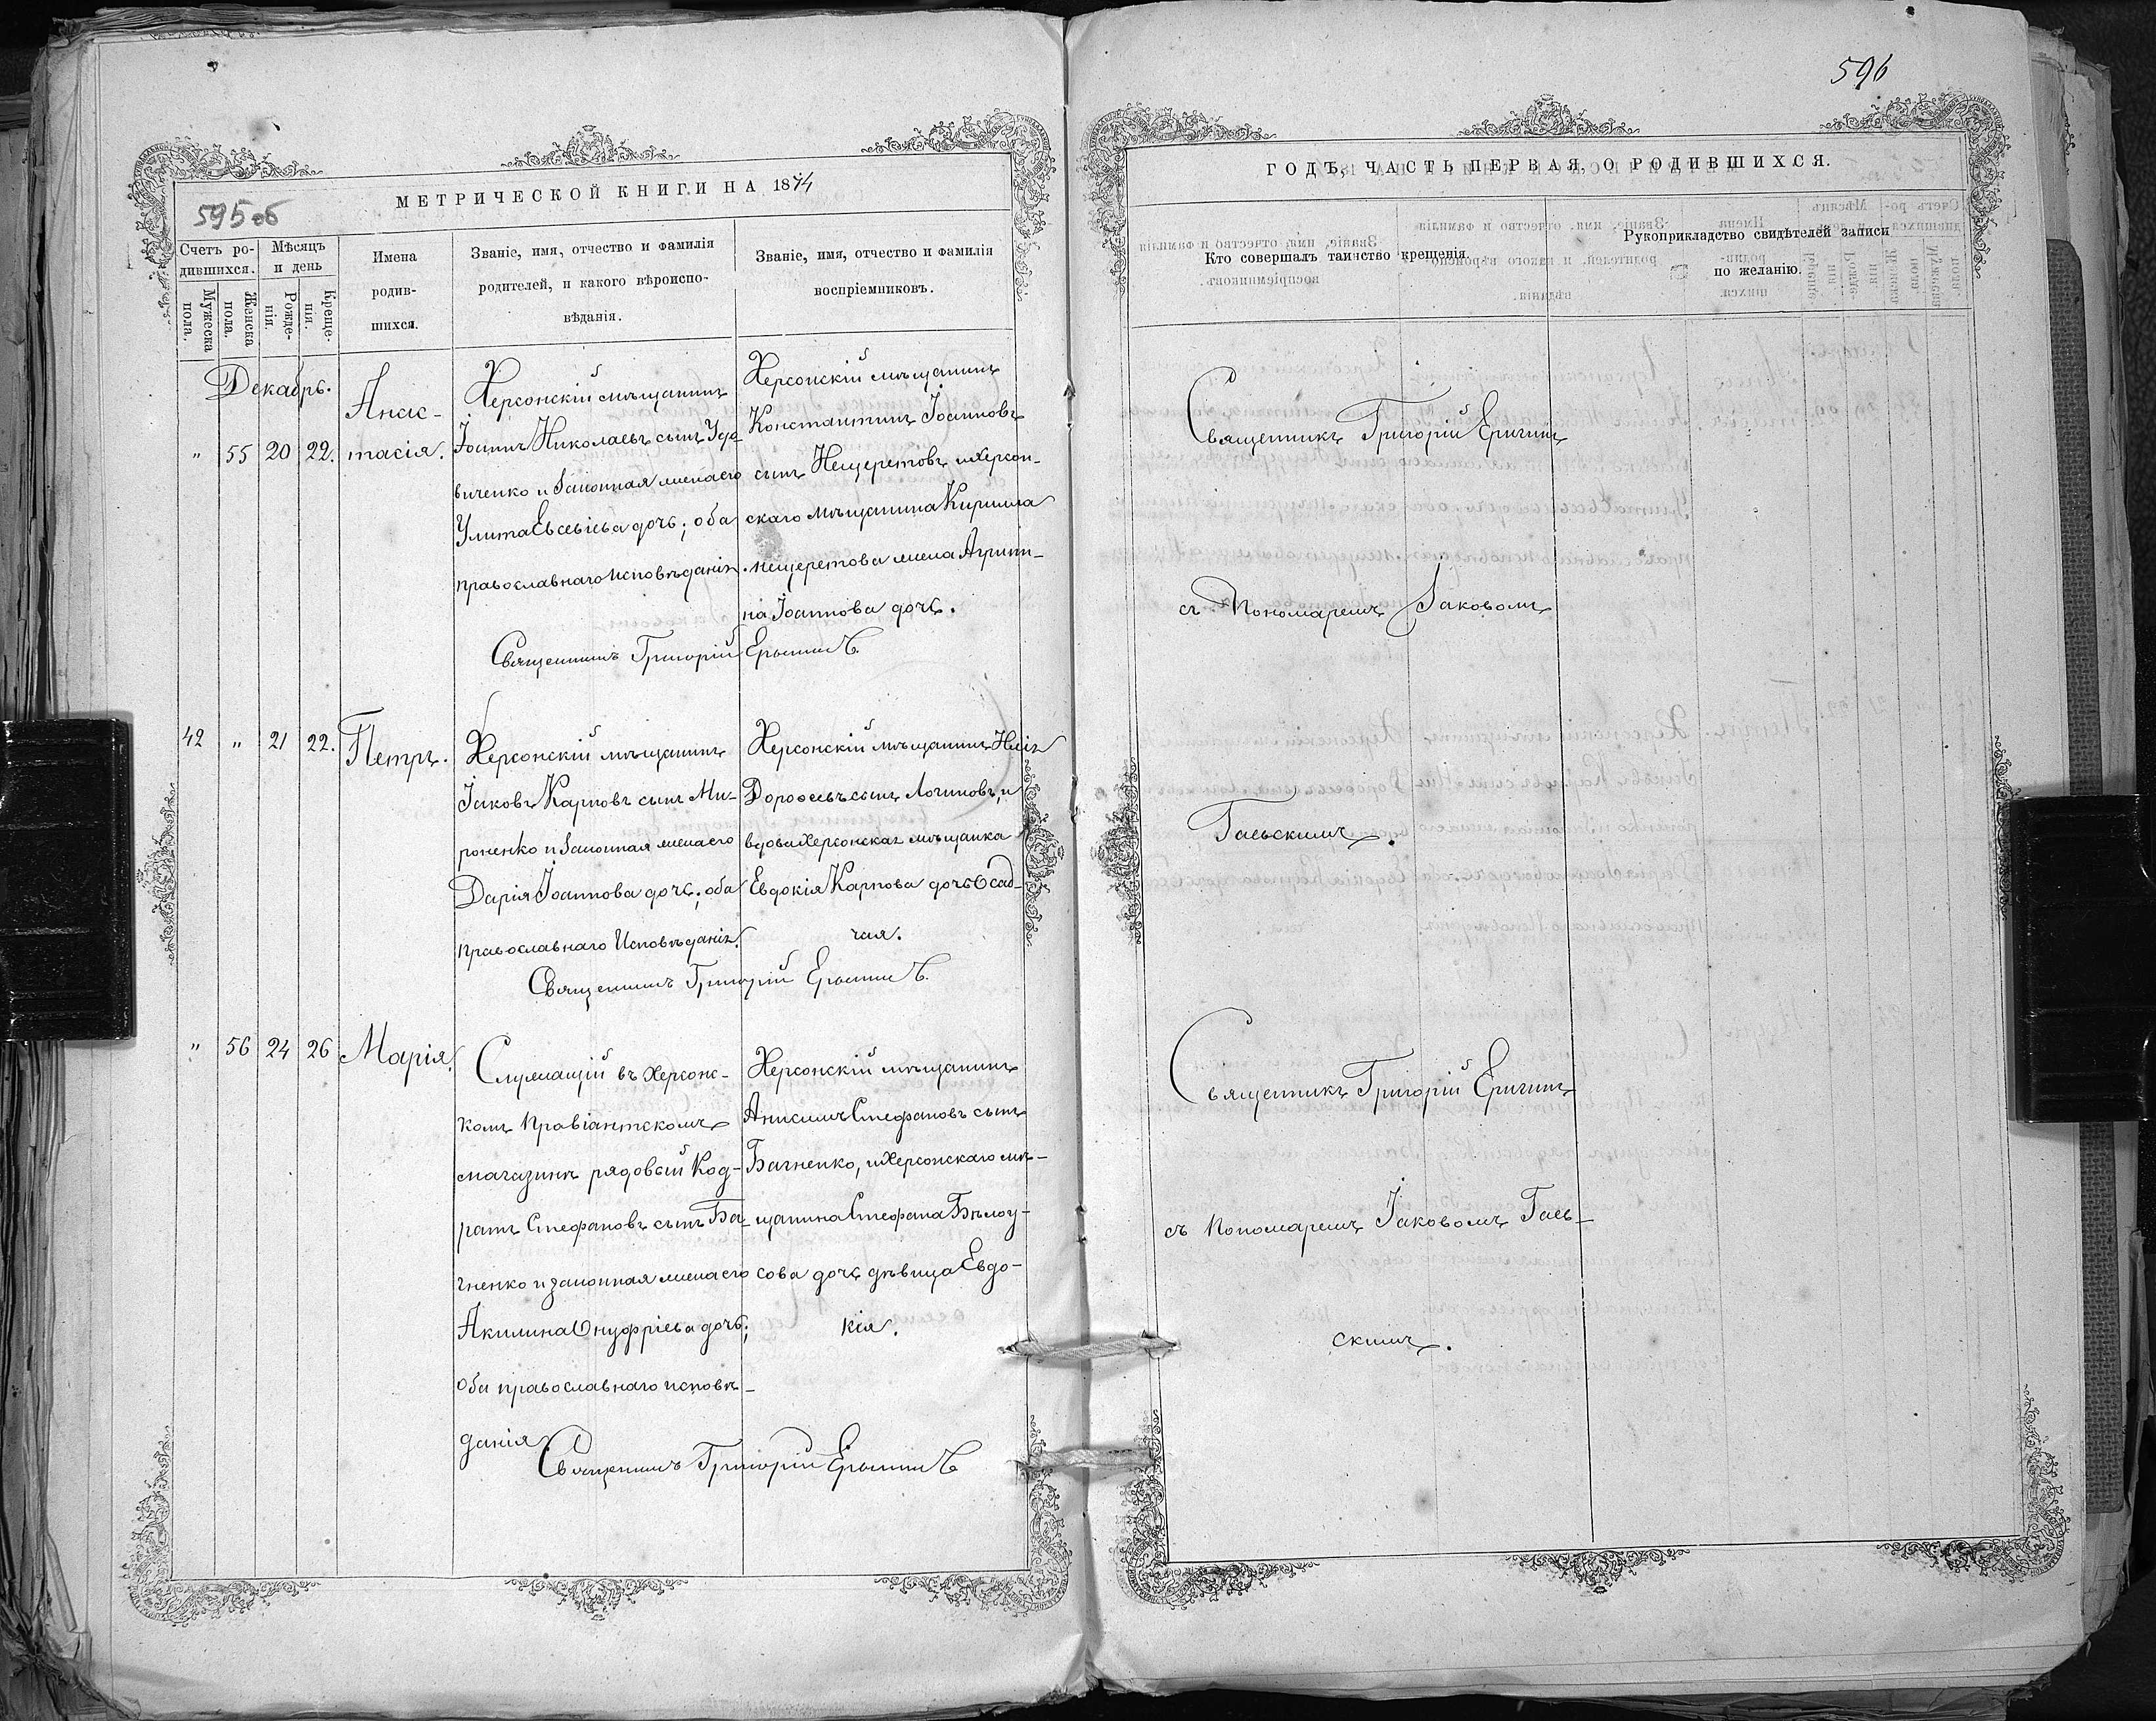 596
МЕТРИЧЕСКОЙ КНИГИ НА 1874
595об
Счетъ ро-
дившихся.
Мѣсяцъ
и день
Мужеска
пола.
Женска
пола.
Рожде-
нія.
Креще-
нія.
Имена
родив-
шихся.
Званіе, имя, отчество и фамилія
родителей, и какого вѣроиспо-
вѣданія.
Званіе, имя, отчество и фамилія
воспріемниковъ.
Декабрь.
" 55 20 22.
Анас-
тасія.
Херсонскій мѣщанинъ
Іоаннъ Николаевъ сынъ
виченко и Законная жена его
Улита Евсевіева дочь; оба
православнаго Исповѣданія.
Херсонскій мѣщанинъ
Константинъ Іоанновъ
сынъ Нещеретовъ и Херсон-
скаго мѣщанина Кирилла
Нещеретова жена Агрипи-
на Іоаннова дочь.
Священникъ Григорій
42 " 21 22.
Петръ.
Херсонскій мѣщанинъ
Іаковъ Карповъ сынъ Ми-
роненко и Законная жена его
Дарія Іоаннова дочь; оба
православнаго Исповѣданія.
Херсонскій мѣщанинъ
Дорофеевъ сынъ Логиновъ, и
вдова Херсонская мѣщанка
Евдокія Карпова дочь Осад-
чая.
Священникъ Григорій
" 56 24 26
Марія.
Служащій въ Херсонс-
комъ Провіантскомъ
магазинѣ рядовый Код-
ратъ Стефановъ сынъ Ба-
гненко и законная жена его
Акилина Онуфріева дочь;
оба православнаго исповѣ-
данія
Херсонскій мѣщанинъ
Анисимъ Стефановъ сынъ
Багненко, и Херсонскаго мѣ-
щанина Стефана Бѣлоу-
сова дочь дѣвица Евдо-
кія.
Священникъ Григорій
ГОДЪ, ЧАСТЬ ПЕРВАЯ, О РОДИВШИХСЯ.
Кто совершалъ таинство крещенія.
Рукоприкладство свидѣтелей записи
по желанію.
Священникъ Григорій
съ Пономаремъ Іаковомъ
Гаевскимъ.
Священникъ Григорій
съ Пономаремъ Іаковомъ Гаев-
скимъ.